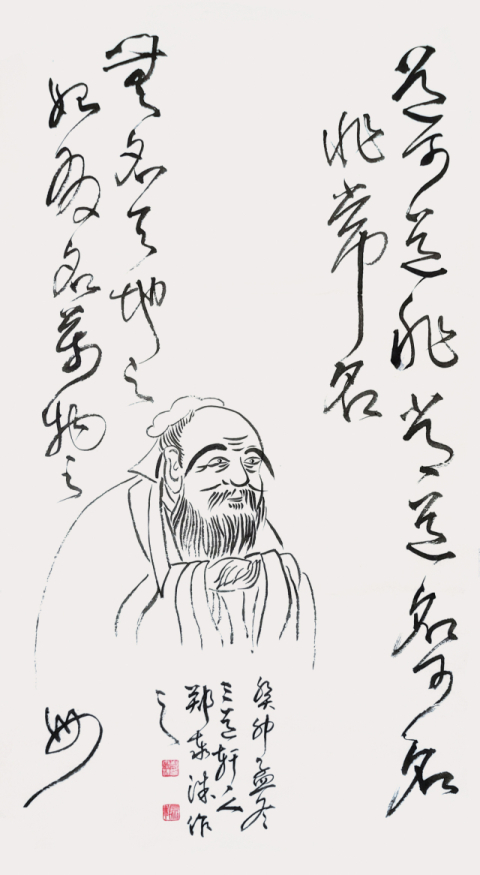 道可道非常道名可名
非常名
無名天地之
始有名萬物之母
癸卯孟冬
三道轩人
郑作
之